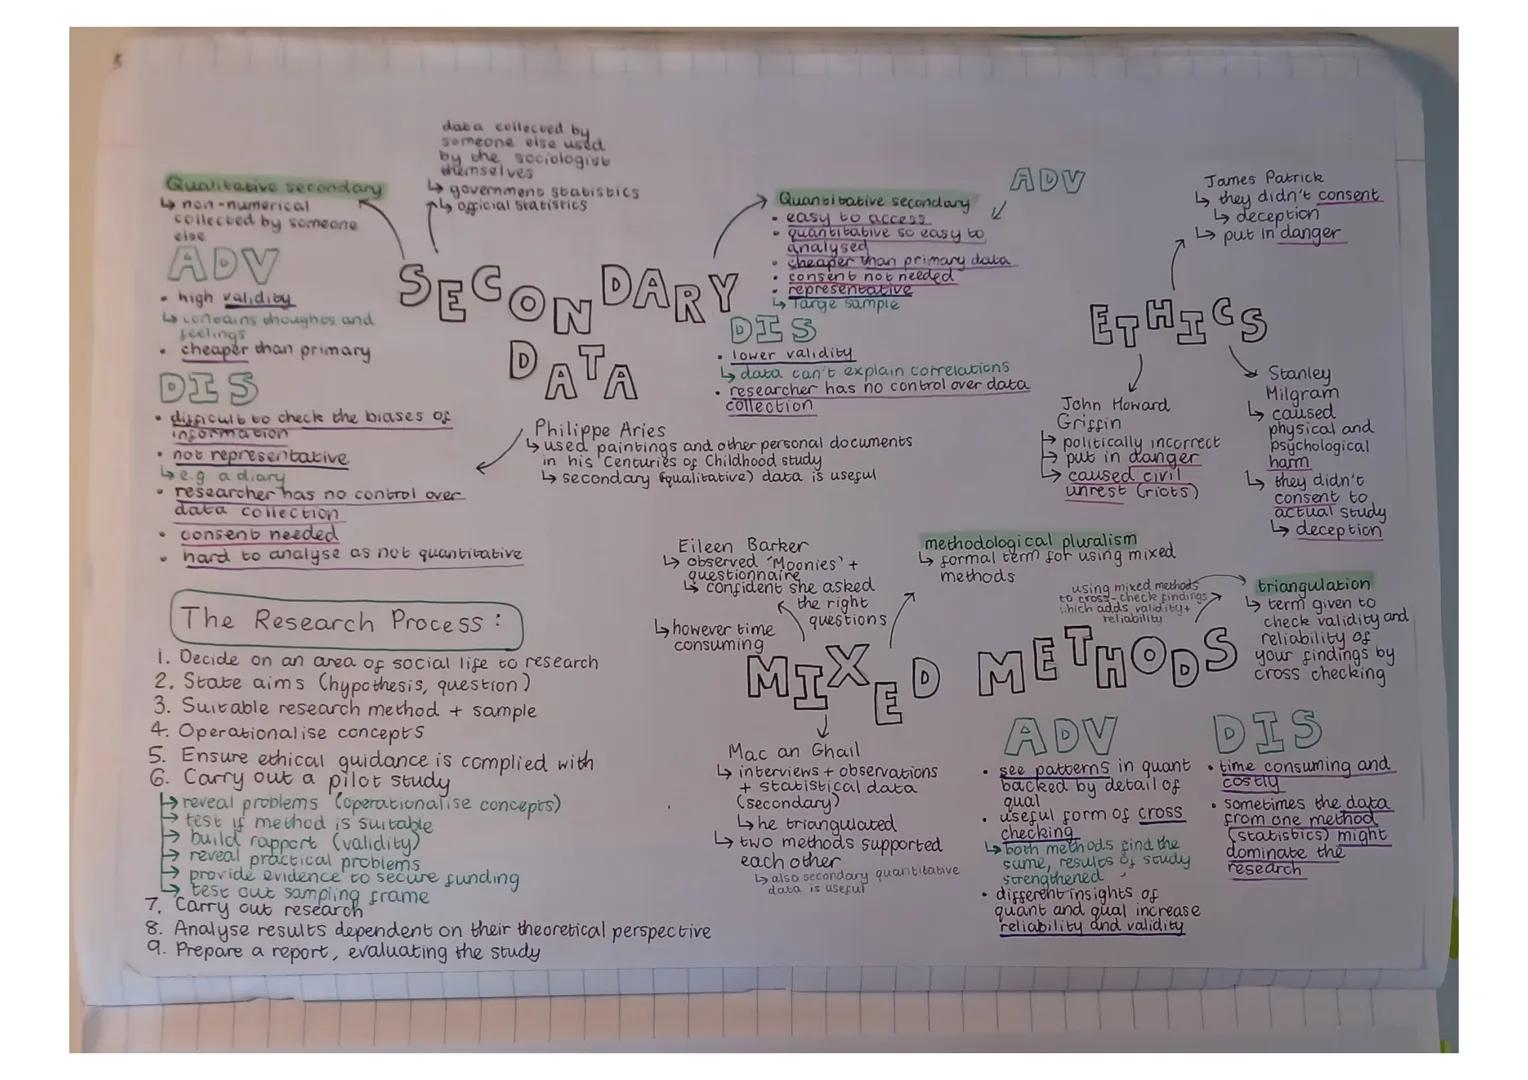 data collected by
someone else used
by the sociologist
themselves
↳ government statistics
↳ official statistics
Qualitative secondary
↳ non-numerical
collected by someone
else
ADV
• high validity
↳ contains thoughts and
feelings
• cheaper than primary
DIS
• difficult to check the biases of
information
• not representative
↳ e.g a diary
• researcher has no control over
data collection
• consent needed
• hard to analyse as not quantitative
SECONDARY
DATA
Quantitative secondary
ADV
• easy to access
• quantitative so easy to
analysed
• cheaper than primary data
• consent not needed
• representative
↳ large sample
DIS
• lower validity
↳ data can't explain correlations
• researcher has no control over data
collection
Philippe Aries
↳ used paintings and other personal documents
in his 'Centuries of Childhood study
↳ secondary (qualitative) data is useful
James Patrick
↳ they didn't consent
↳ deception
↳ put in danger
ETHICS
John Howard
Griffin
↳ politically incorrect
↳ put in danger
↳ caused civil
unrest (riots)
Stanley
Milgram
↳ caused
physical and
psychological
harm
↳ they didn't
consent to
actual study
↳ deception
The Research Process:
1. Decide on an area of social life to research
2. State aims (hypothesis, question)
3. Suitable research method + sample
4. Operationalise concepts
5. Ensure ethical guidance is complied with
6. Carry out a pilot study
↳ reveal problems (operationalise concepts)
↳ test if method is suitable
↳ build rapport (validity)
↳ reveal practical problems
↳ provide evidence to secure funding
↳ test out sampling frame
7. Carry out research
8. Analyse results dependent on their theoretical perspective
9. Prepare a report, evaluating the study
Eileen Barker
↳ observed 'Moonies' +
questionnaire
↳ confident she asked
the right
questions
↳ however time
consuming
methodological pluralism
↳ formal term for using mixed
methods
using mixed methods
to cross-check findings
which adds validity +
reliability
triangulation
↳ term given to
check validity and
reliability of
your findings by
cross checking
MIXED METHODS
Mac an Ghail
↳ interviews + observations
+ statistical data
(secondary)
↳ he triangulated
↳ two methods supported
each other
↳ also secondary quantitative
data is useful
ADV
• see patterns in quant
backed by detail of
qual
• useful form of cross
checking
↳ both methods find the
same, results of study
strengthened
• different insights of
quant and qual increase
reliability and validity
DIS
• time consuming and
costly
• sometimes the data
from one method
(statistics) might
dominate the
research